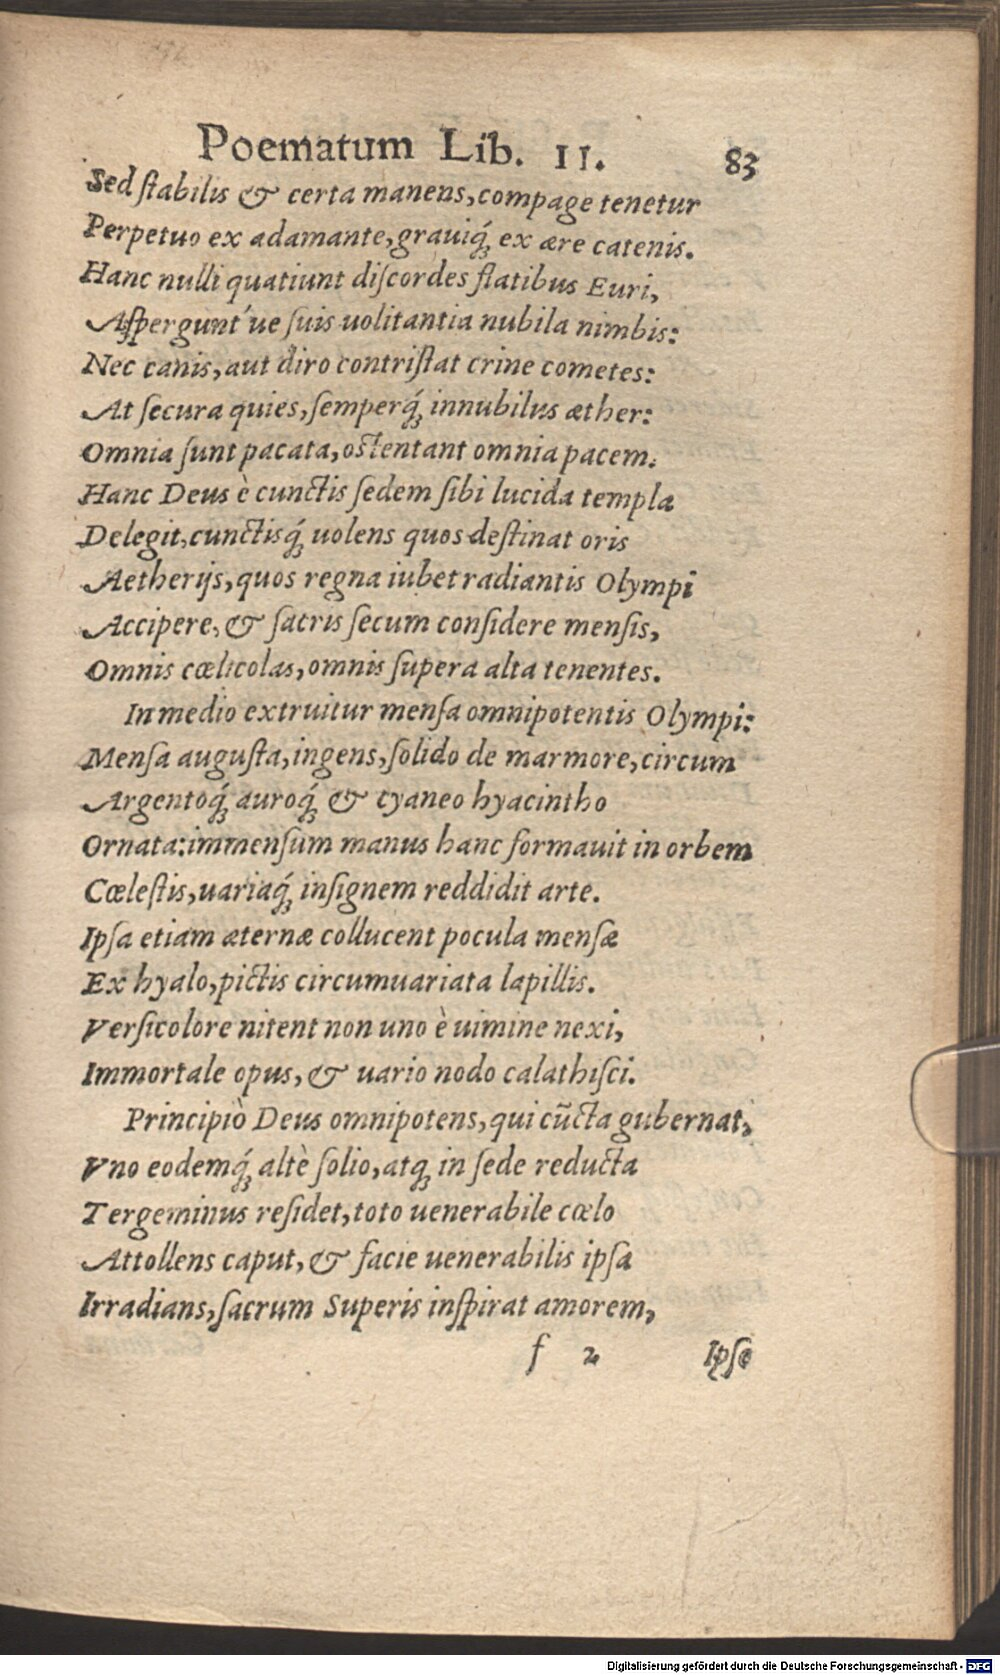 Poematum Lib. II. 83
Sed ſtabilis & certa manens, compage tenetur
Perpetuo ex adamante, grauiq́; ex ære catenis.
Hanc nulli quatiunt diſcordes flatibus Euri,
Aſpergunt´ue ſuis uolitantia nubila nimbis:
Nec canis, aut diro contriſtat crine cometes:
At ſecura quies, ſemperq́; innubilus æther:
Omnia ſunt pacata, oſtentant omnia pacem.
Hanc Deus è cunctis ſedem ſibi lucida templa
Delegit, cunctisq́; uolens quos deſtinat oris
Aetherijs, quos regna iubet radiantis Olympi
Accipere, & ſacris ſecum conſidere menſis,
Omnis cœlicolas, omnis ſupera alta tenentes.
In medio extruitur menſa omnipotentis Olympi:
Menſa auguſta, ingens, ſolido de marmore, circum
Argentoq́; auroq́; & cyaneo hyacintho
Ornata: immenſum manus hanc formauit in orbem
Cœleſtis, uariaq́; inſignem reddidit arte.
Ipſa etiam æternæ collucent pocula menſæ
Ex hyalo, pictis circumuariata lapillis.
Verſicolore nitent non uno è uimine nexi,
Immortale opus, & uario nodo calathiſci.
Principiò Deus omnipotens, qui cũcta gubernat,
Vno eodemq́; altè ſolio, atq; in ſede reducta
Tergeminus reſidet, toto uenerabile cœlo
Attollens caput, & facie uenerabilis ipſa
Irradians, ſacrum Superis inſpirat amorem,
f 2 Ipſe
Digitalisierung gefördert durch die Deutsche Forschungsgemeinschaft - DFG